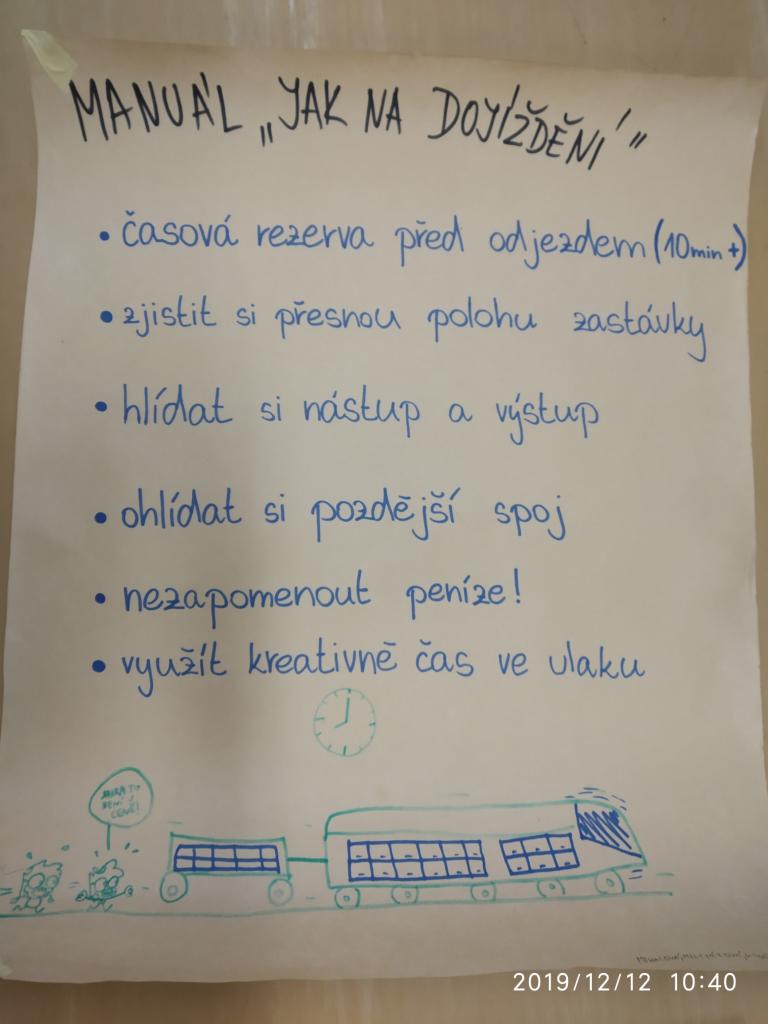 MANUÁL „JAK NA DOJÍŽDĚNÍ"
• časová rezerva před odjezdem (10min+)
• zjistit si přesnou polohu zastávky
• hlídat si nástup a výstup
• ohlídat si pozdější spoj
• nezapomenout peníze!
• využít kreativně čas ve vlaku
2019/12/12 10:40